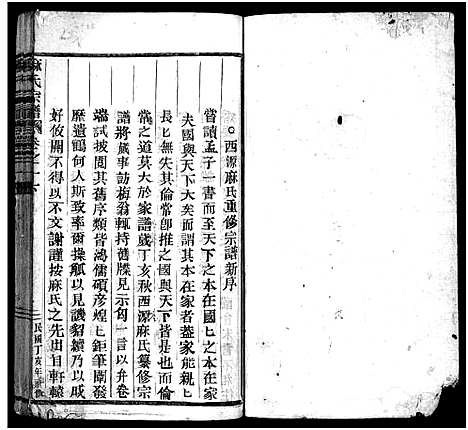 西源麻氏重修宗譜新序
嘗讀孟子一書而至天下之本在國匕之本在家
夫國與天下大矣而謂其本在家者蓋家能親匕
長匕無失其倫常卽推之國與天下皆是也而倫
常之道莫大於家譜歲丁亥秋西源麻氏纂修宗
譜將蕆事訪梅翁輒持舊牒見示匃一言以弁卷
端試披閱其舊序類皆鴻儒碩彥煌匕鉅筆闡發
歷遺鶴何人斯敢率爾操觚以見譏貂續乃以戚
好攸關不得以不文謝謹按麻氏之先出自軒轅
麻氏宗譜 卷之十六
民國丁亥年